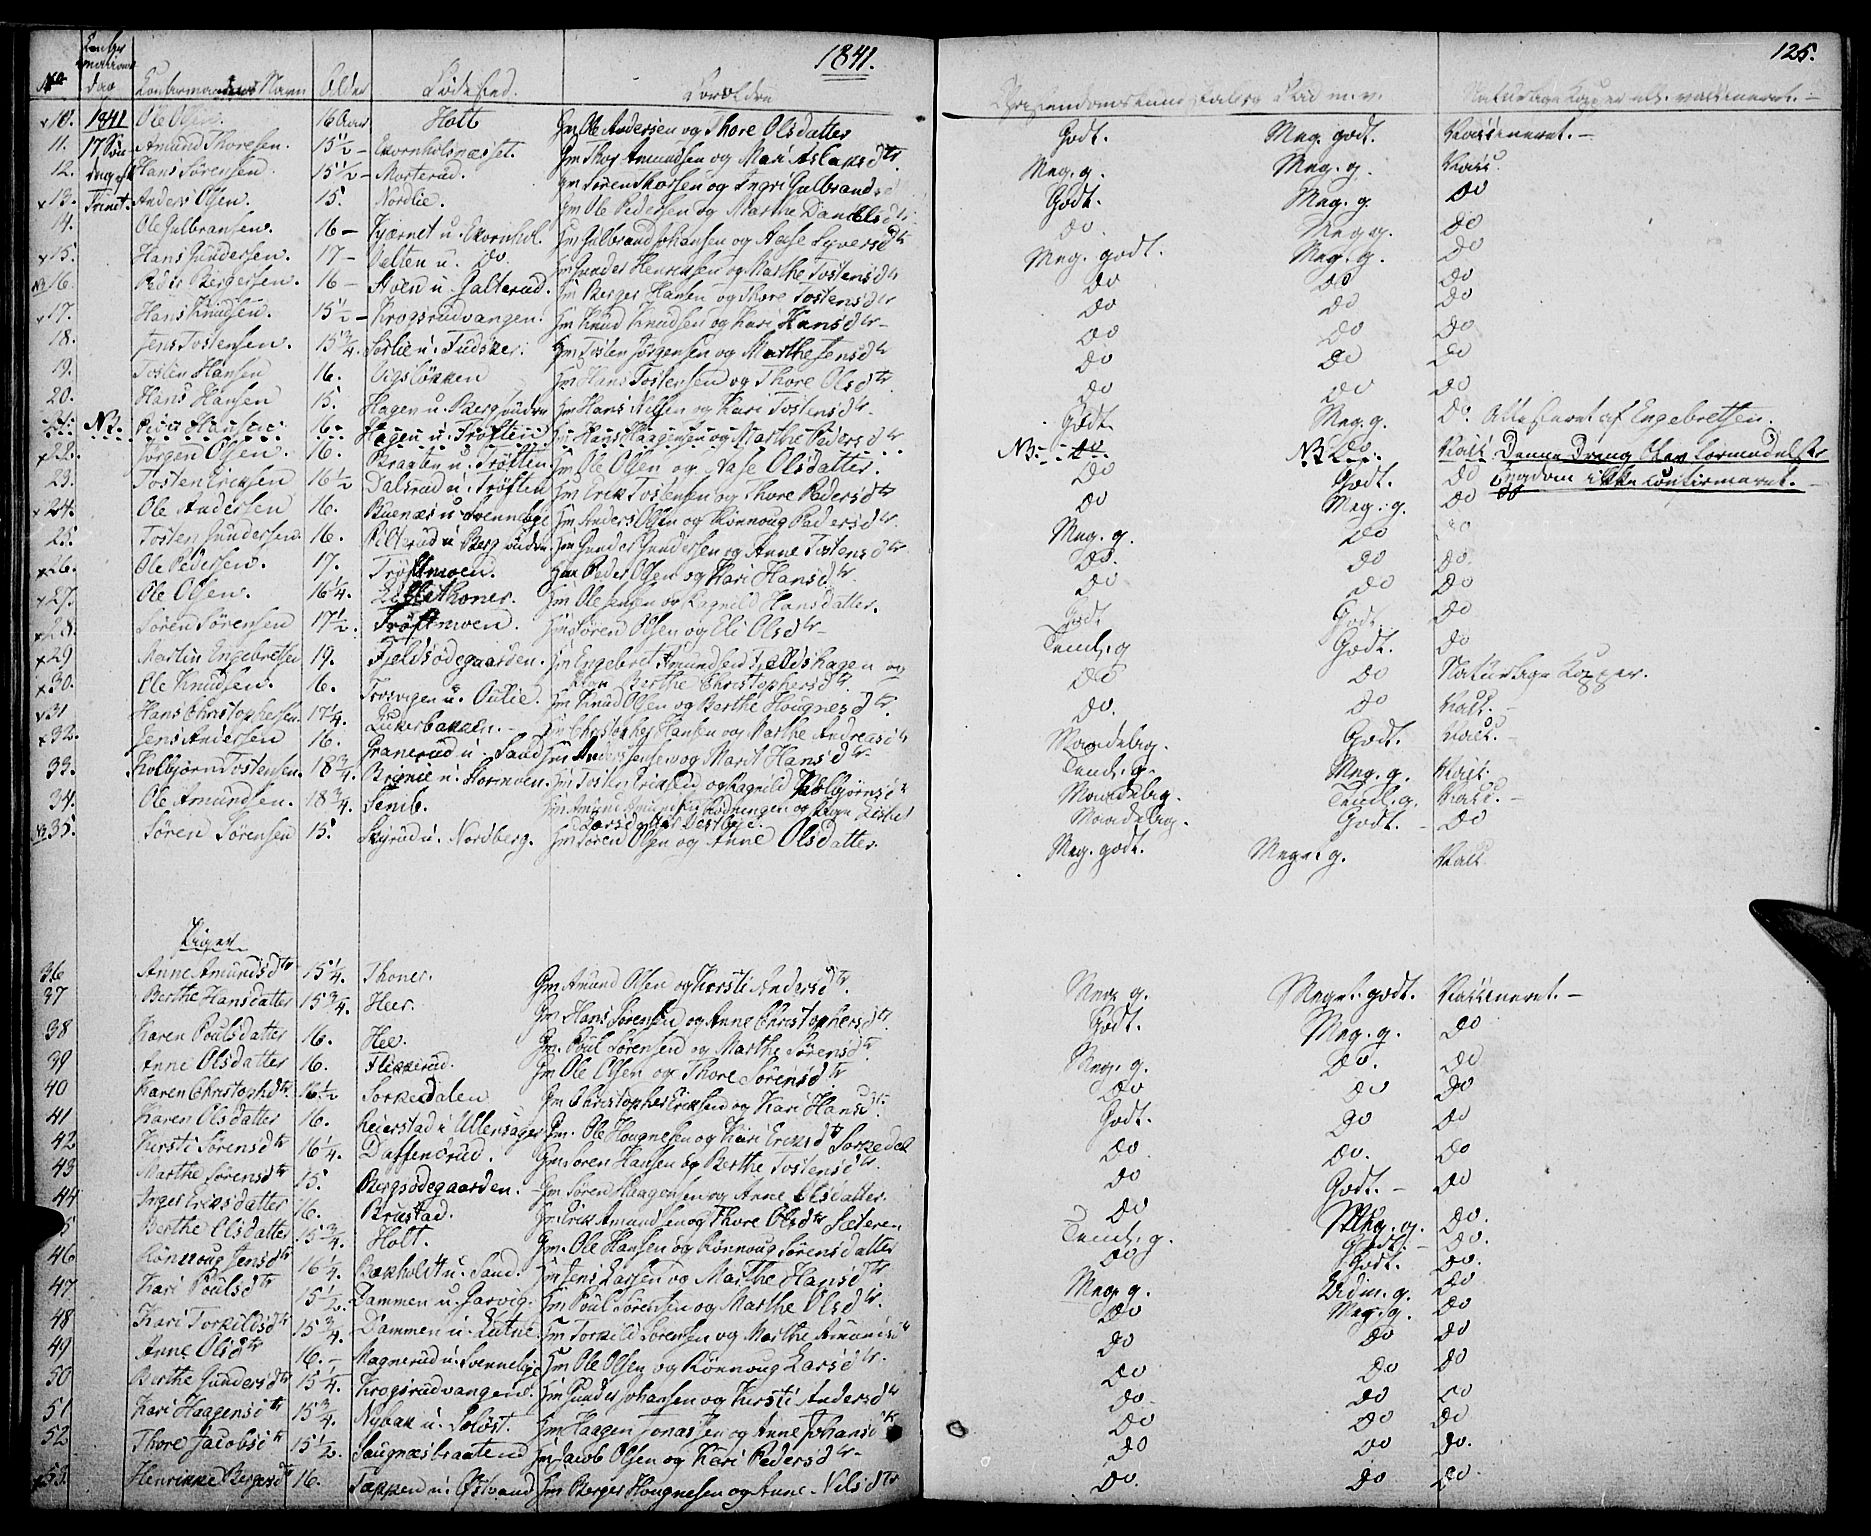 1841.
125.
No Confirmations dag Confirmandens Navn Alder Fødested. Forældre
10. 1841 Ole Olsen. 16 Aar Holt Gm Ole Andersen og Thore Olsdatter Godt. Meg. godt. Vaccineret.-
11. 17 Søn Amund Thoresen. 15½- Ekornholsnæsset. Gm Thor Amundsen og Mari Aslaksdtr Meg. g. Meg. g. Vacc.
12. Hans Sørensen 15½- Morterud. Gm Søren Thorsen og Ingri Gulbrandsd Godt. Meg. g. do
13. Trinit. Anders Olsen. 15. Nordlie. Gm Ole Pedersen og Marthe Danielsdtr do. Meg. g. do
14. Ole Gulbransen. 16- Kjærnet u. Ekornhol. Gm Gulbrand Johansen og Aase Syversdtr Meg. godt. Meg. g. do
15. Hans Gundersen. 17- Velten u. do. Gm Gunder Henriksen og Marthe Tostensdtr do do do
16. Peder Bergersen. 16- Moen u. Galterud. Gm Berger Hansen og Thore Tostensdtr do do do
17. Hans Knudsen. 15½- Krogsrudvangen. Gm Knud Knudsen og Kari Hansdtr- do do do
18. Jens Tostensen. 15¾. Sørlie u. Fudsker. Gm Tosten Jørgensen og Marthe Jensdtr do do do
19. Tosten Hansen 16. Vigsløkken Gm Hans Tostensen og Thore Olsdtr do do do
20. Hans Hansen 15. Hagen u. Berg søndre Gm Hans Nilsen og Kari Tostensdtr. Godt. Meg. g. do. Attesteret af Engebretsen.
21. NB. Peder Hansen 16. Hagen u. Trøften Gm Hans Haagensen og Marthe Pedersdtr NB- do NB do. Vacc Denne Dreng blev formedelst
22. Jørgen Olsen. 16. Braaten u. Trøften Gm Ole Olsen og Aase Olsdatter. do Godt. do Sygdom ikke confirmeret.
23. Tosten Eriksen 16½ Dalsrud u. Trøften Gm Erik Tostensen og Thore Pedersdtr do Meg. g. do
24. Ole Andersen 16. Buenæs u. Svenneby Gm Anders Olsen og Rønnoug Pedersdtr. Meg. g. do do
25. Tosten Gundersen. 16. Pilterud u. Berg søndre. Gm Gunder Gundersen og Anne Tostensdtr do. do do.
26. Ole Pedersen. 17. Trøftmoen. Gm Peder Olsen og Kari Hansdtr do do do
27. Ole Olsen. 16¼. Lillethoner. Gm Ole Jensen og Ragnild Hansdatter. Godt Godt. do
28. Søren Sørensen 17½. Trøftmoen. Gm Søren Olsen og Eli Olsdtr- Teml. g Godt. do
29 Martin Engebretsen 19. Fjeldsødegaarden. Gm Engebret Amundsen Fjeldshagen og Kone Berthe Christophersdtr. do do Naturlige Kopper.
30. Ole Knudsen. 16. Trosvigen u. Oulie. Gm Knud Olsen og Berthe Hougnesdtr. do. do Vacc.-
31 Hans Christophersen. 17¼. Lukerbakken.- Gm Christopher Hansen og Marthe Andreasdtr Maadelig. Godt. Vacc.-
32. Jens Andersen 16. Granerud u. Sand Gm Anders Jensen og Marit Hansdtr. Teml. g. Meg. g. Vacc.
33. Kolbjørn Tostensen. 18¾. Brenne u. Stormoen. Gm Tosten Eriksen og Ragnild Kolbjørnsdtr Maadelig. Temlg. Vacc.-
34. Ole Amundsen. 18¾. Senib. Larsdatter Maadelig. Godt. - do
35. Søren Sørensen 15. Skyrud u. Nordberg. Gm Søren Olsen og Anne Olsdatter. Meg. godt. Meget g. Vacc.
Piger
36 Anne Amundsdtr 15¼. Thoner. Gm Amund Olsen og Kersti Andersdtr. Meg. g. Meget godt. Vaccineret.-
37 Berthe Hansdatter 15¾. Heer. Gm Hans Sørensen og Anne Christophersdtr. Godt. Meg. g. do
38 Karen Poulsdatter 16. Hee. Gm. Poul Sørensen og Marthe Sørensdtr. Meg. g. do. do
39 Anne Olsdatter 16. Flikkerud. Gm Ole Olsen og Thore Sørensdtr do do do
40 Karen Christophdtr. 16½ Sorkedalen Gm Christopher Eriksen og Kari Hansdtr. Godt. do do
41 Karen Olsdatter 16. Reierstad i Ullensager Gm. Ole Hougnesen og Kari Eriksdtr Sorkedal do do. do
42 Kersti Sørensdtr 16¼. Daffendrud. Gm Søren Hansen og Berthe Tostensdtr. do Godt.- do
43 Marthe Sørensdtr 15. Bergsødegaarden. Gm Søren Haagensen og Anne Olsdatter. do Meg. g. do.
44 Inger Eriksdatter 16. Brustad. Gm Erik Amundsen og Thore Olsdtr Sæteren Temlg. Godt.- do.
5 Berthe Olsdatter 15¾. Holt. Gm. Ole Hansen og Rønnoug Sørensdatter do Godt. do.
46 Rønnoug Jensdtr 16¼. Bækholdt u. Sand. Gm Jens Larsen og Marthe Hansdtr Meg. g. do
47 Kari Poulsdtr 15½. Dammen u. Garvig. Gm Poul Sørensen og Marthe Olsdtr. do Meg. g. do
48 Kari Torkildsdtr 15¾. Dammen u. Gm Torkild Sørensen og Marthe Amundsdtr do do do
49 Anne Olsdtr 16.- Magnerud u. Svenneby Gm Ole Olsen og Rønnoug Larsdtr. do do do
50 Berthe Gundersdtr 15¼. Krogsrudvangen. Gm Gunder Johansen og Kersti Andersdtr do. do do
51 Kari Haagensdtr 15¾. Nybak u. Soløst. Gm Haagen Jonassen og Anne Johansdtr do do do
52 Thore Jacobsdtr 15½. Saugnæsbraatend Gm Jacob Olsen og Kari Pedersdtr- do do do.
53. Henrikke Bergersdtr 16. Tappen u. Østvand Gm Berger Hougnesen og Anne Nilsdtr do. do do.